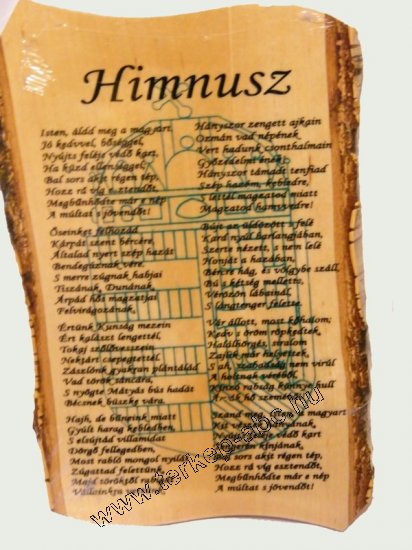 Himnusz
Isten, áldd meg a magyart,
Jó kedvvel, bőséggel,
Nyújts feléje védő kart,
Ha küzd ellenséggel;
Bal sors akit régen tép,
Hozz rá víg esztendőt,
Megbűnhődte már e nép
A múltat s jövendőt!
Őseinket felhozád
Kárpát szent bércére,
Általad nyert szép hazát
Bendegúznak vére.
S merre zúgnak habjai
Tiszának, Dunának,
Árpád hős magzatjai
Felvirágozának.
Értünk Kunság mezein
Ért kalászt lengettél,
Tokaj szőlővesszein
Nektárt csepegtettél.
Zászlónk gyakran plántálád
Vad török sáncára,
S nyögte Mátyás bús hadát
Bécsnek büszke vára.
Hajh, de bűneink miatt
Gyúlt harag kebledben,
S elsújtád villámidat
Dörgő fellegedben,
Most rabló mongol nyilát
Zúgattad felettünk,
Majd töröktől
Vállainkra
Hányszor zengett ajkain
Ozmán vad népének
Vert hadunk csonthalmain
Győzedelmi ének!
Hányszor támadt tenfiad
Szép hazám, kebledre,
S lettél magzatod miatt
Magzatod hamvvedre!
Bújt az üldözött s felé
Kard nyúl barlangjában,
Szerte nézett, s nem lelé
Honját a hazában,
Bércre hág, és völgybe száll,
Bú s kétség mellette,
Vérözön lábainál,
S lángtenger felette.
Vár állott, most kőhalom;
Kedv s öröm röpkedtek,
Halálhörgés, siralom
Zajlik már helyettek.
S ah, szabadság nem virúl
A holtnak véréből,
Kínzó rabság könnye hull
Árvák hő szeméből!
Szánd meg, isten, a magyart
Kit vészek hányának,
Nyújts feléje védő kart
Tengerén kínjának.
Bal sors akit régen tép,
Hozz rá víg esztendőt,
Megbűnhődte már e nép
A múltat s jövendőt!